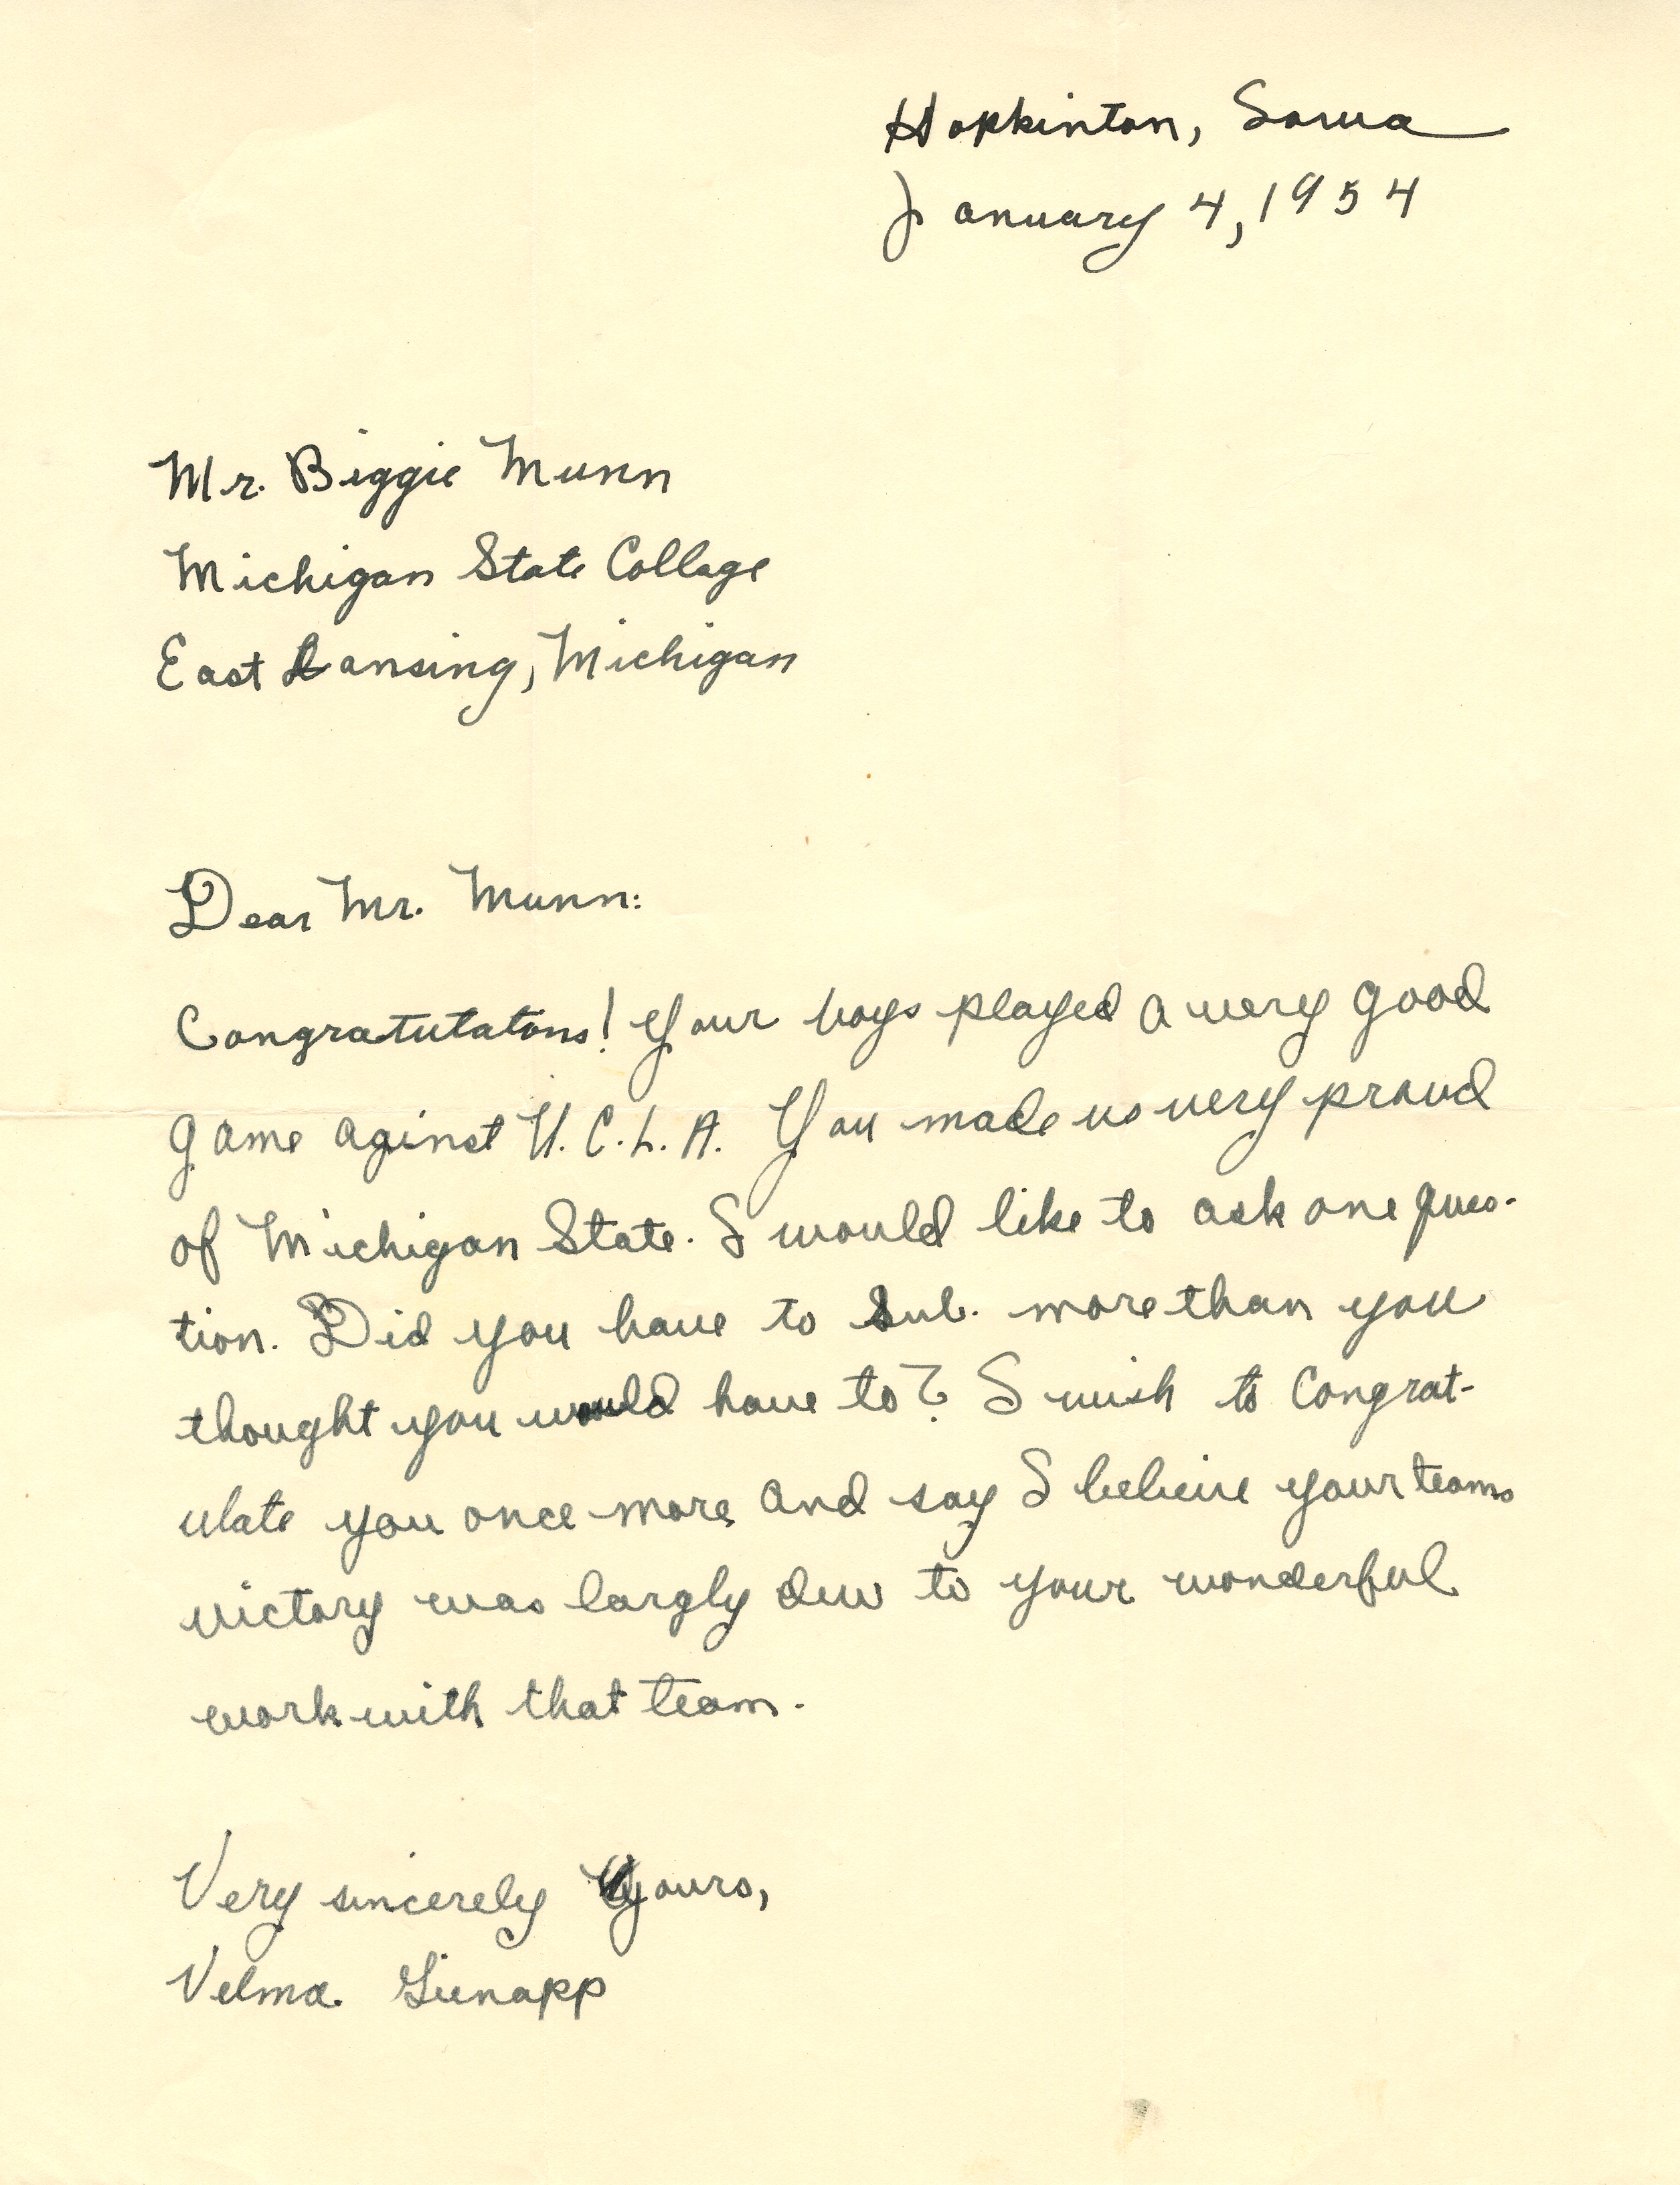 Hopkinton, Iowa
January 4, 1954
Mr. Biggie Munn
Michigan State Collage
East Lansing, Michigan
Dear Mr. Munn:
Congratutatons! Your boys played a very good
game aginst U.C.L.A. You made us very proud
of Michigan State. I would like to ask one ques-
tion. Did you have to sub. more than you
thought you would have to? I wish to Congrat-
ulate you once more and say I beleive your teams
victory was largly due to your wonderful
work with that team.
Very sincerely yours,
Velma